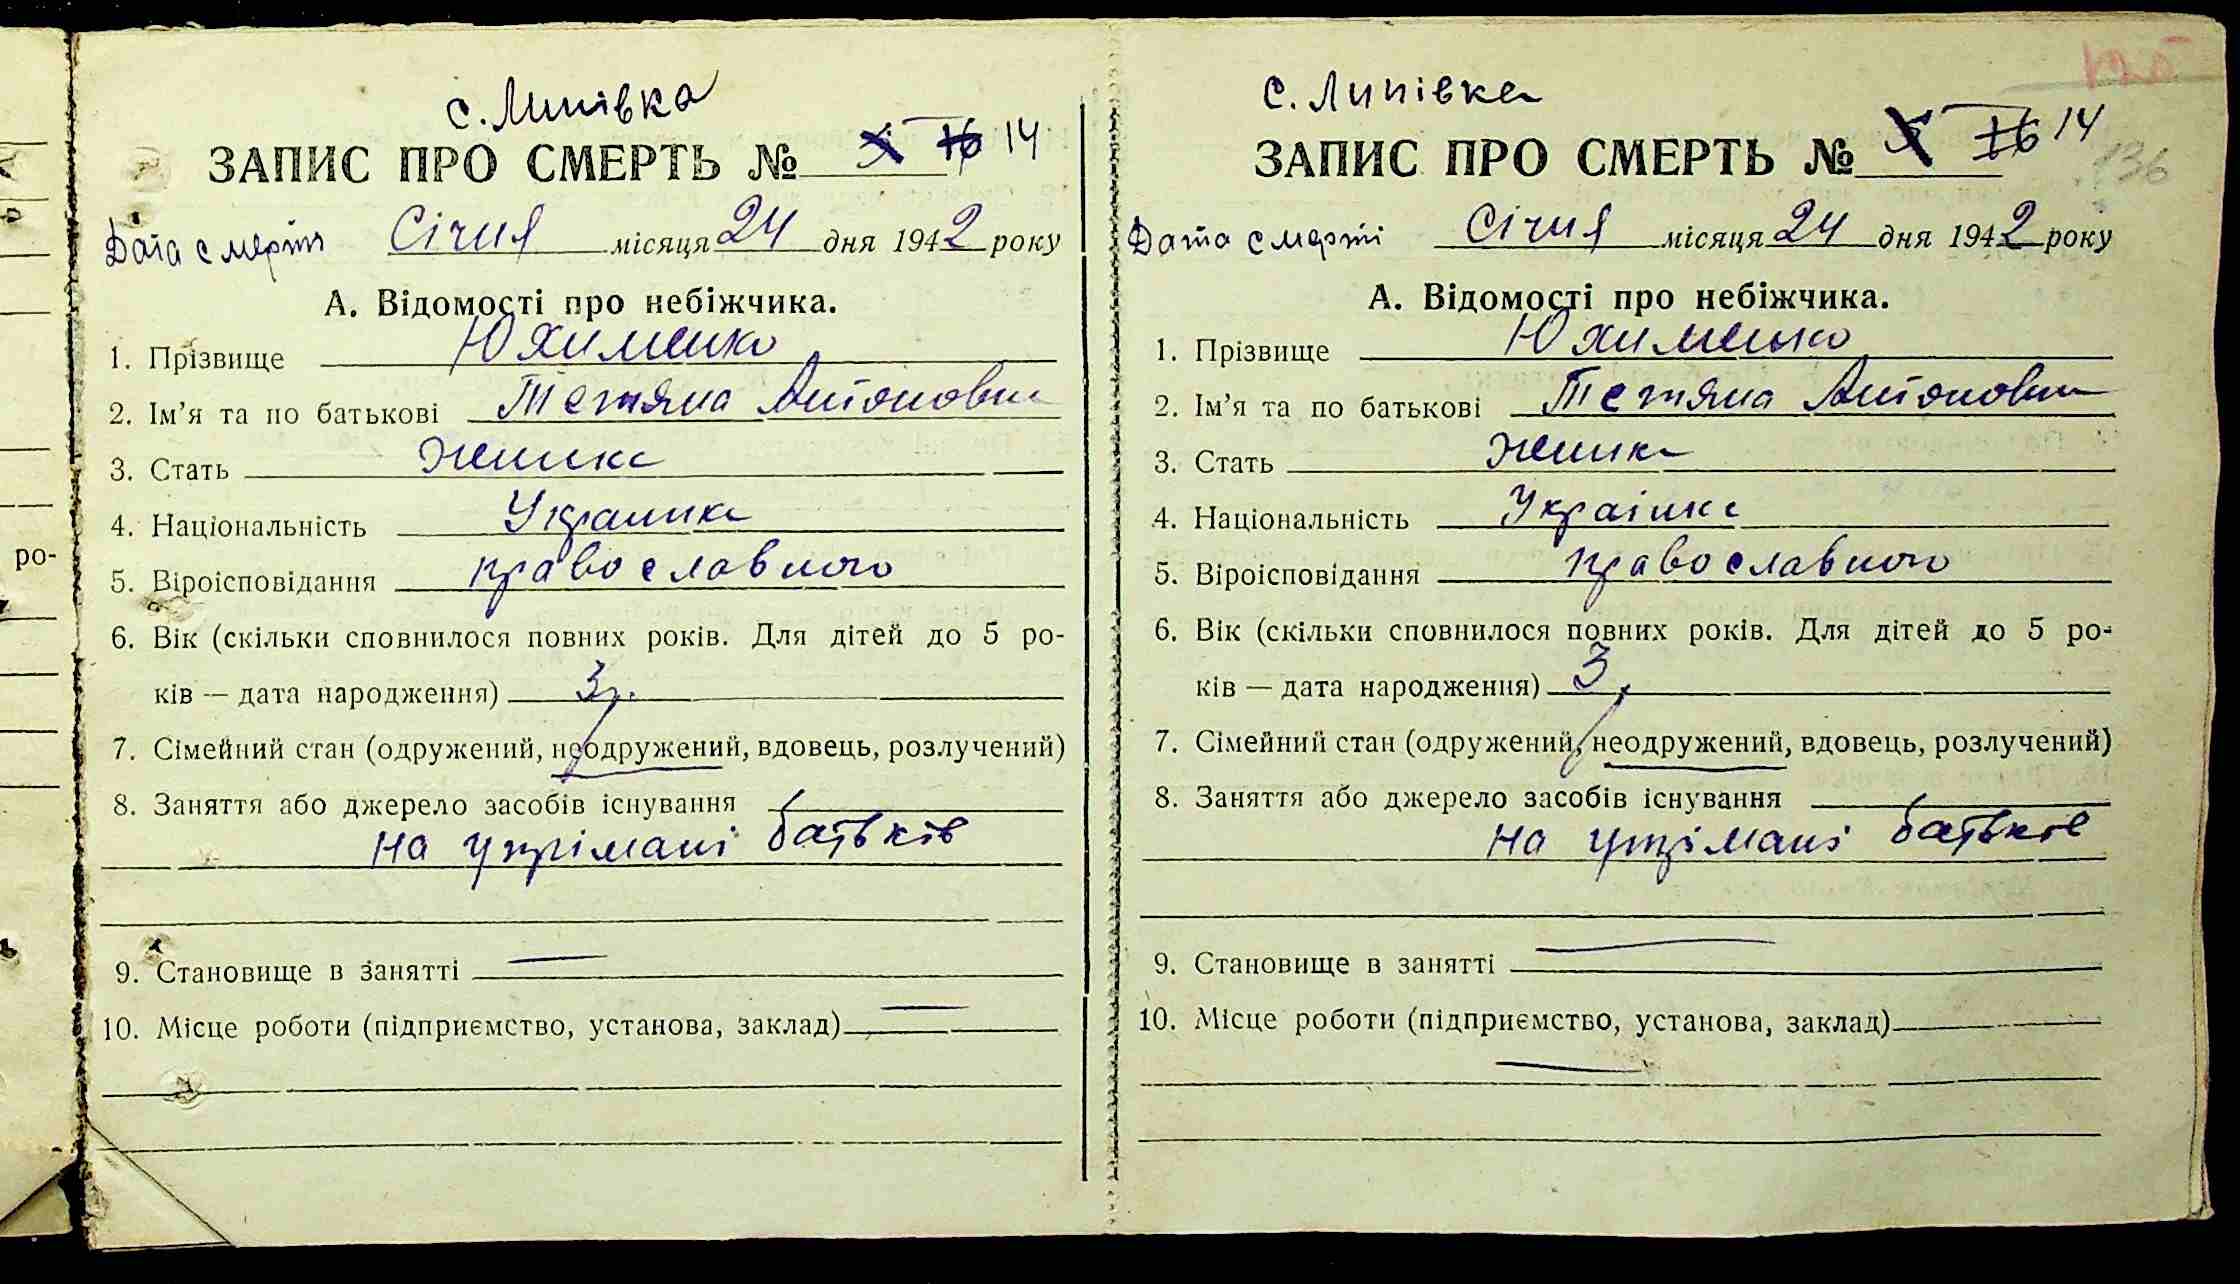 ро-
с. Липівка
ЗАПИС ПРО СМЕРТЬ № 16 14
Дата смерти Січня місяця 24 дня 1942 року
А. Відомості про небіжчика.
1. Прізвище Юхименко
2. Ім'я та по батькові Тетяна Антоновна
3. Стать жинка
4. Національність Украинка
5. Віроісповідання православного
6. Вік (скільки сповнилося повних років. Для дітей до 5 ро-
ків — дата народження) 3 р.
7. Сімейний стан (одружений, неодружений, вдовець, розлучений)
8. Заняття або джерело засобів існування
на утрімані батьків
9. Становище в занятті —
10. Місце роботи (підприємство, установа, заклад) —
125
с. Липівка
ЗАПИС ПРО СМЕРТЬ № 16 14
136
Дата смерті Січня місяця 24 дня 1942 року
А. Відомості про небіжчика.
1. Прізвище Юхименко
2. Ім'я та по батькові Тетяна Антоновна
3. Стать жинка
4. Національність Українка
5. Віроісповідання православного
6. Вік (скільки сповнилося повних років. Для дітей до 5 ро-
ків — дата народження) 3
7. Сімейний стан (одружений, неодружений, вдовець, розлучений)
8. Заняття або джерело засобів існування
на утрімані батьків
9. Становище в занятті —
10. Місце роботи (підприємство, установа, заклад)
—